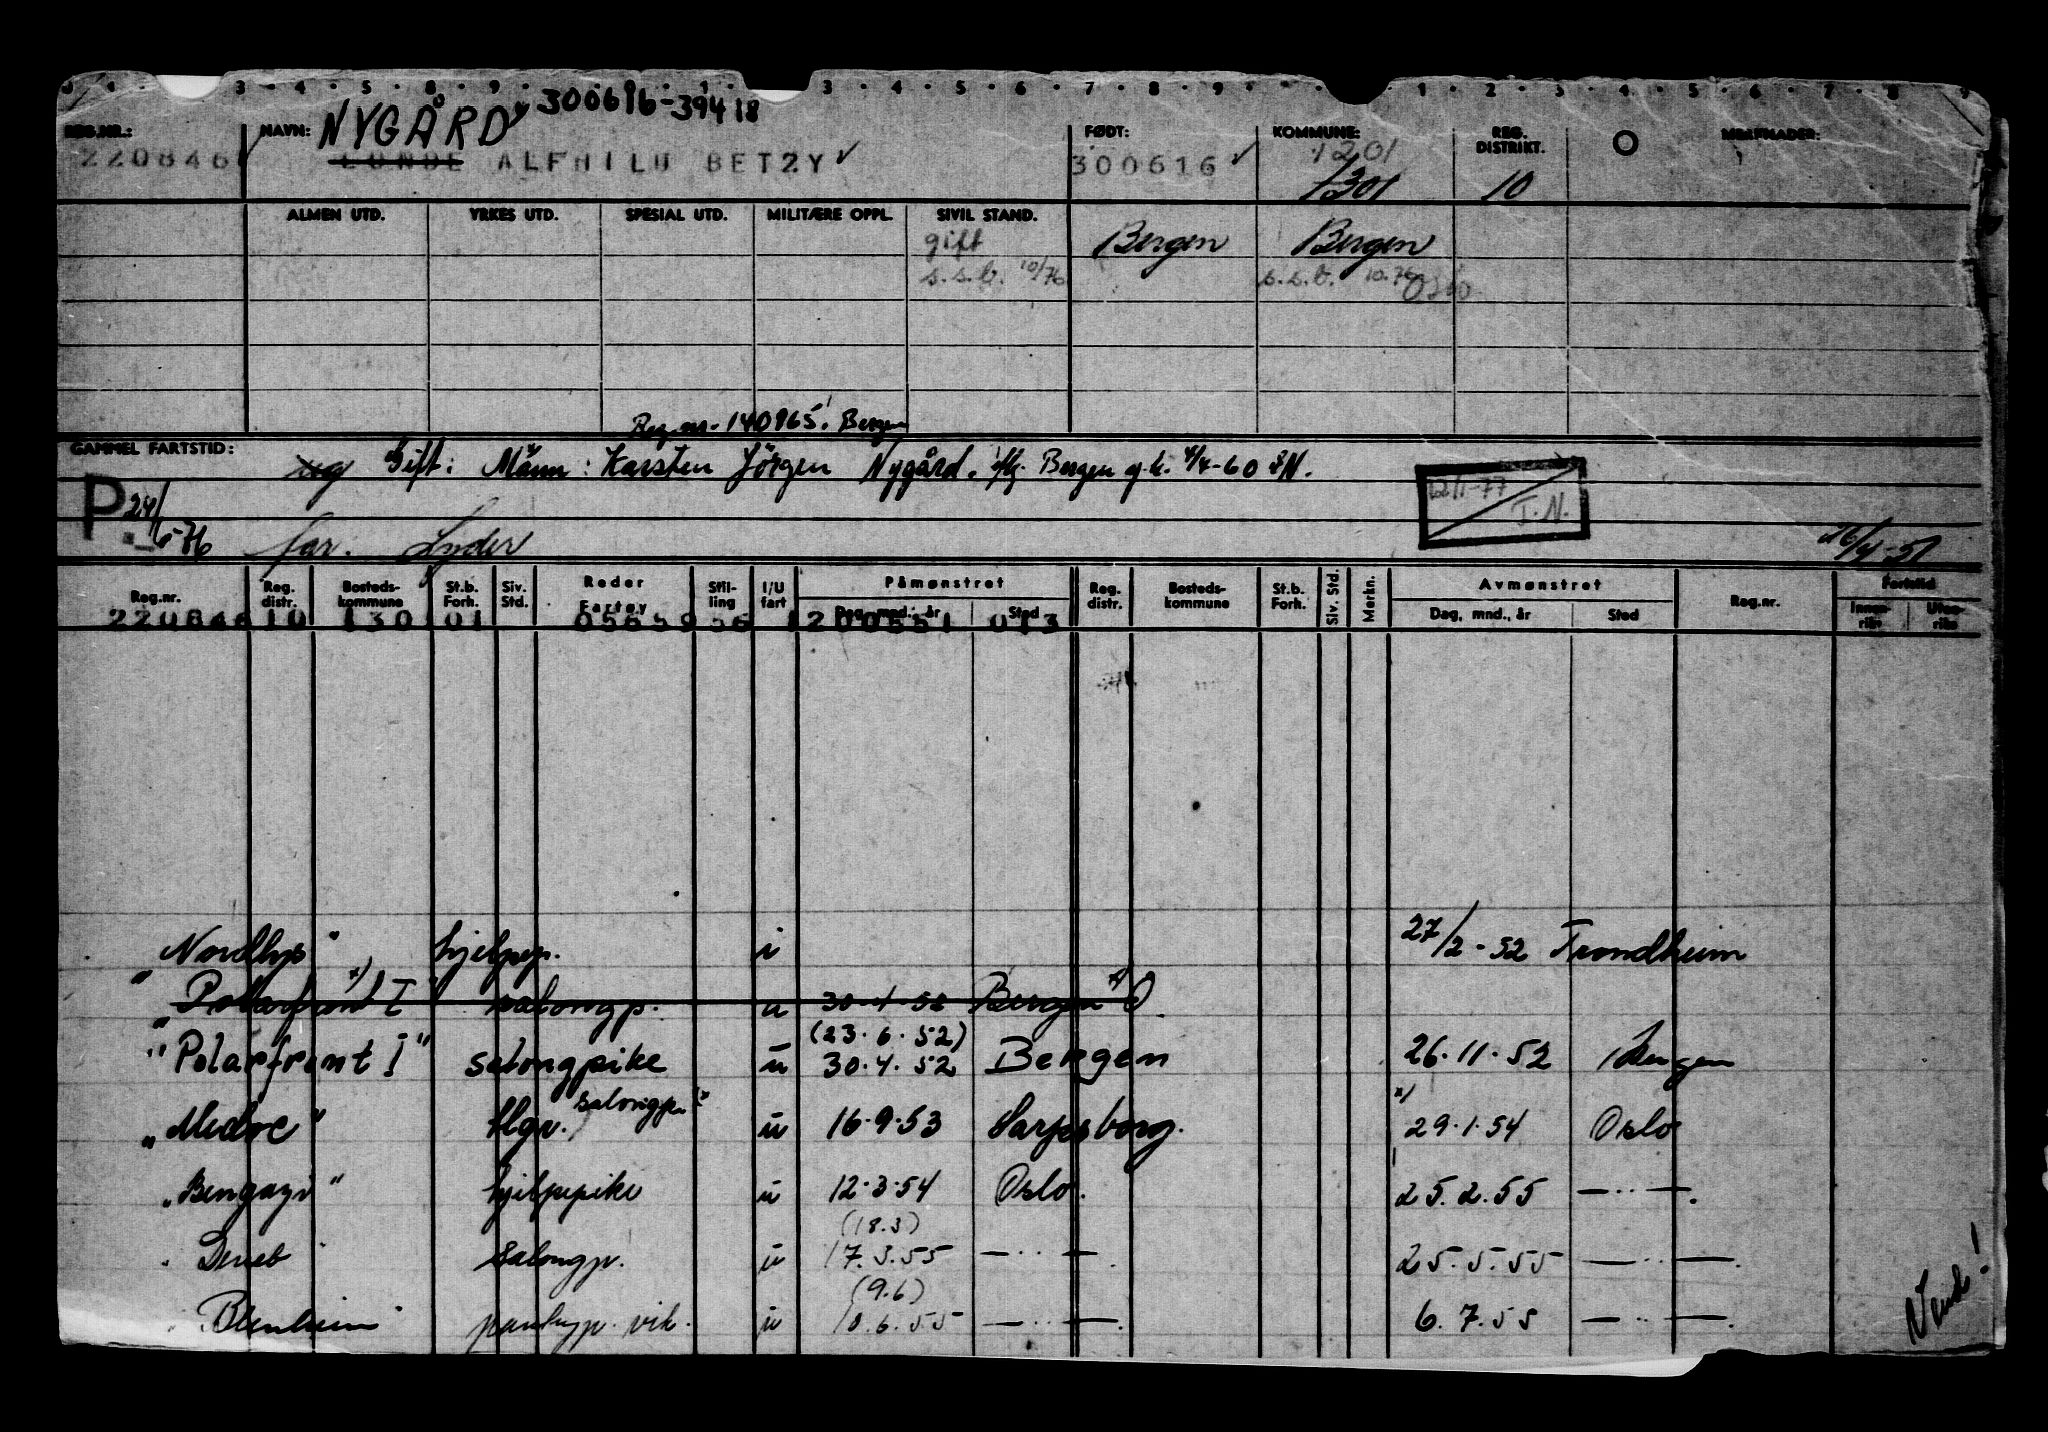 NYGÅRD 300616-39418
REG.NR.: NAVN: FØDT: KOMMUNE: REG. DISTRIKT. MERKNADER:
220846 LUNDE ALFHILD BETZY 300616 1201
1301 10
ALMEN UTD. YRKES UTD. SPESIAL UTD. MILITÆRE OPPL. SIVIL STAND.
gift Bergen Bergen
s.s.b. 10/76 s.s.b. 10.76 Oslo
Reg.nr. 140965. Bergen
GAMMEL FARTSTID: ug Gift: Mann: Karsten Jörgen Nygård. Bergen 4/4-60
P 24/6-76 12/1-77 I.N.
far. Lyder 16/4-51
Reg.nr. Reg. distr. Bosteds-kommune St.b. Forh. Siv. Std. Reder Fartøy Stilling I/U fart Påmønstret Dag, mnd., år Sted Reg. distr. Bosteds-kommune St.b. Forh. Siv. Std. Merkn. Avmønstret Dag, mnd., år Sted Reg.nr. Fartstid Innenriks Utenriks
220846 10 1301 01 05659 56 1 200651 013
"Nordlys" hjelpep. i 27/2-52 Trondheim
"Polarfront I" x) salongp. u 30.4.52 Bergen x)
(23.6.52)
"Polarfront I" salongpike u 30.4.52 Bergen 26.11.52 Bergen
"Medoc" salongp. u 16.9.53 Sarpsborg. x) 29.1.54 Oslo
"Bengazi" hjelpepike u 12.3.54 Oslo. 25.2.55 —..—.
(18.3)
"Deneb" salongp. u 17.3.55 —..— 25.5.55 —..—
(9.6)
"Blenheim" vik. u 10.6.55 —..—. 6.7.55 —..—.
Vend!